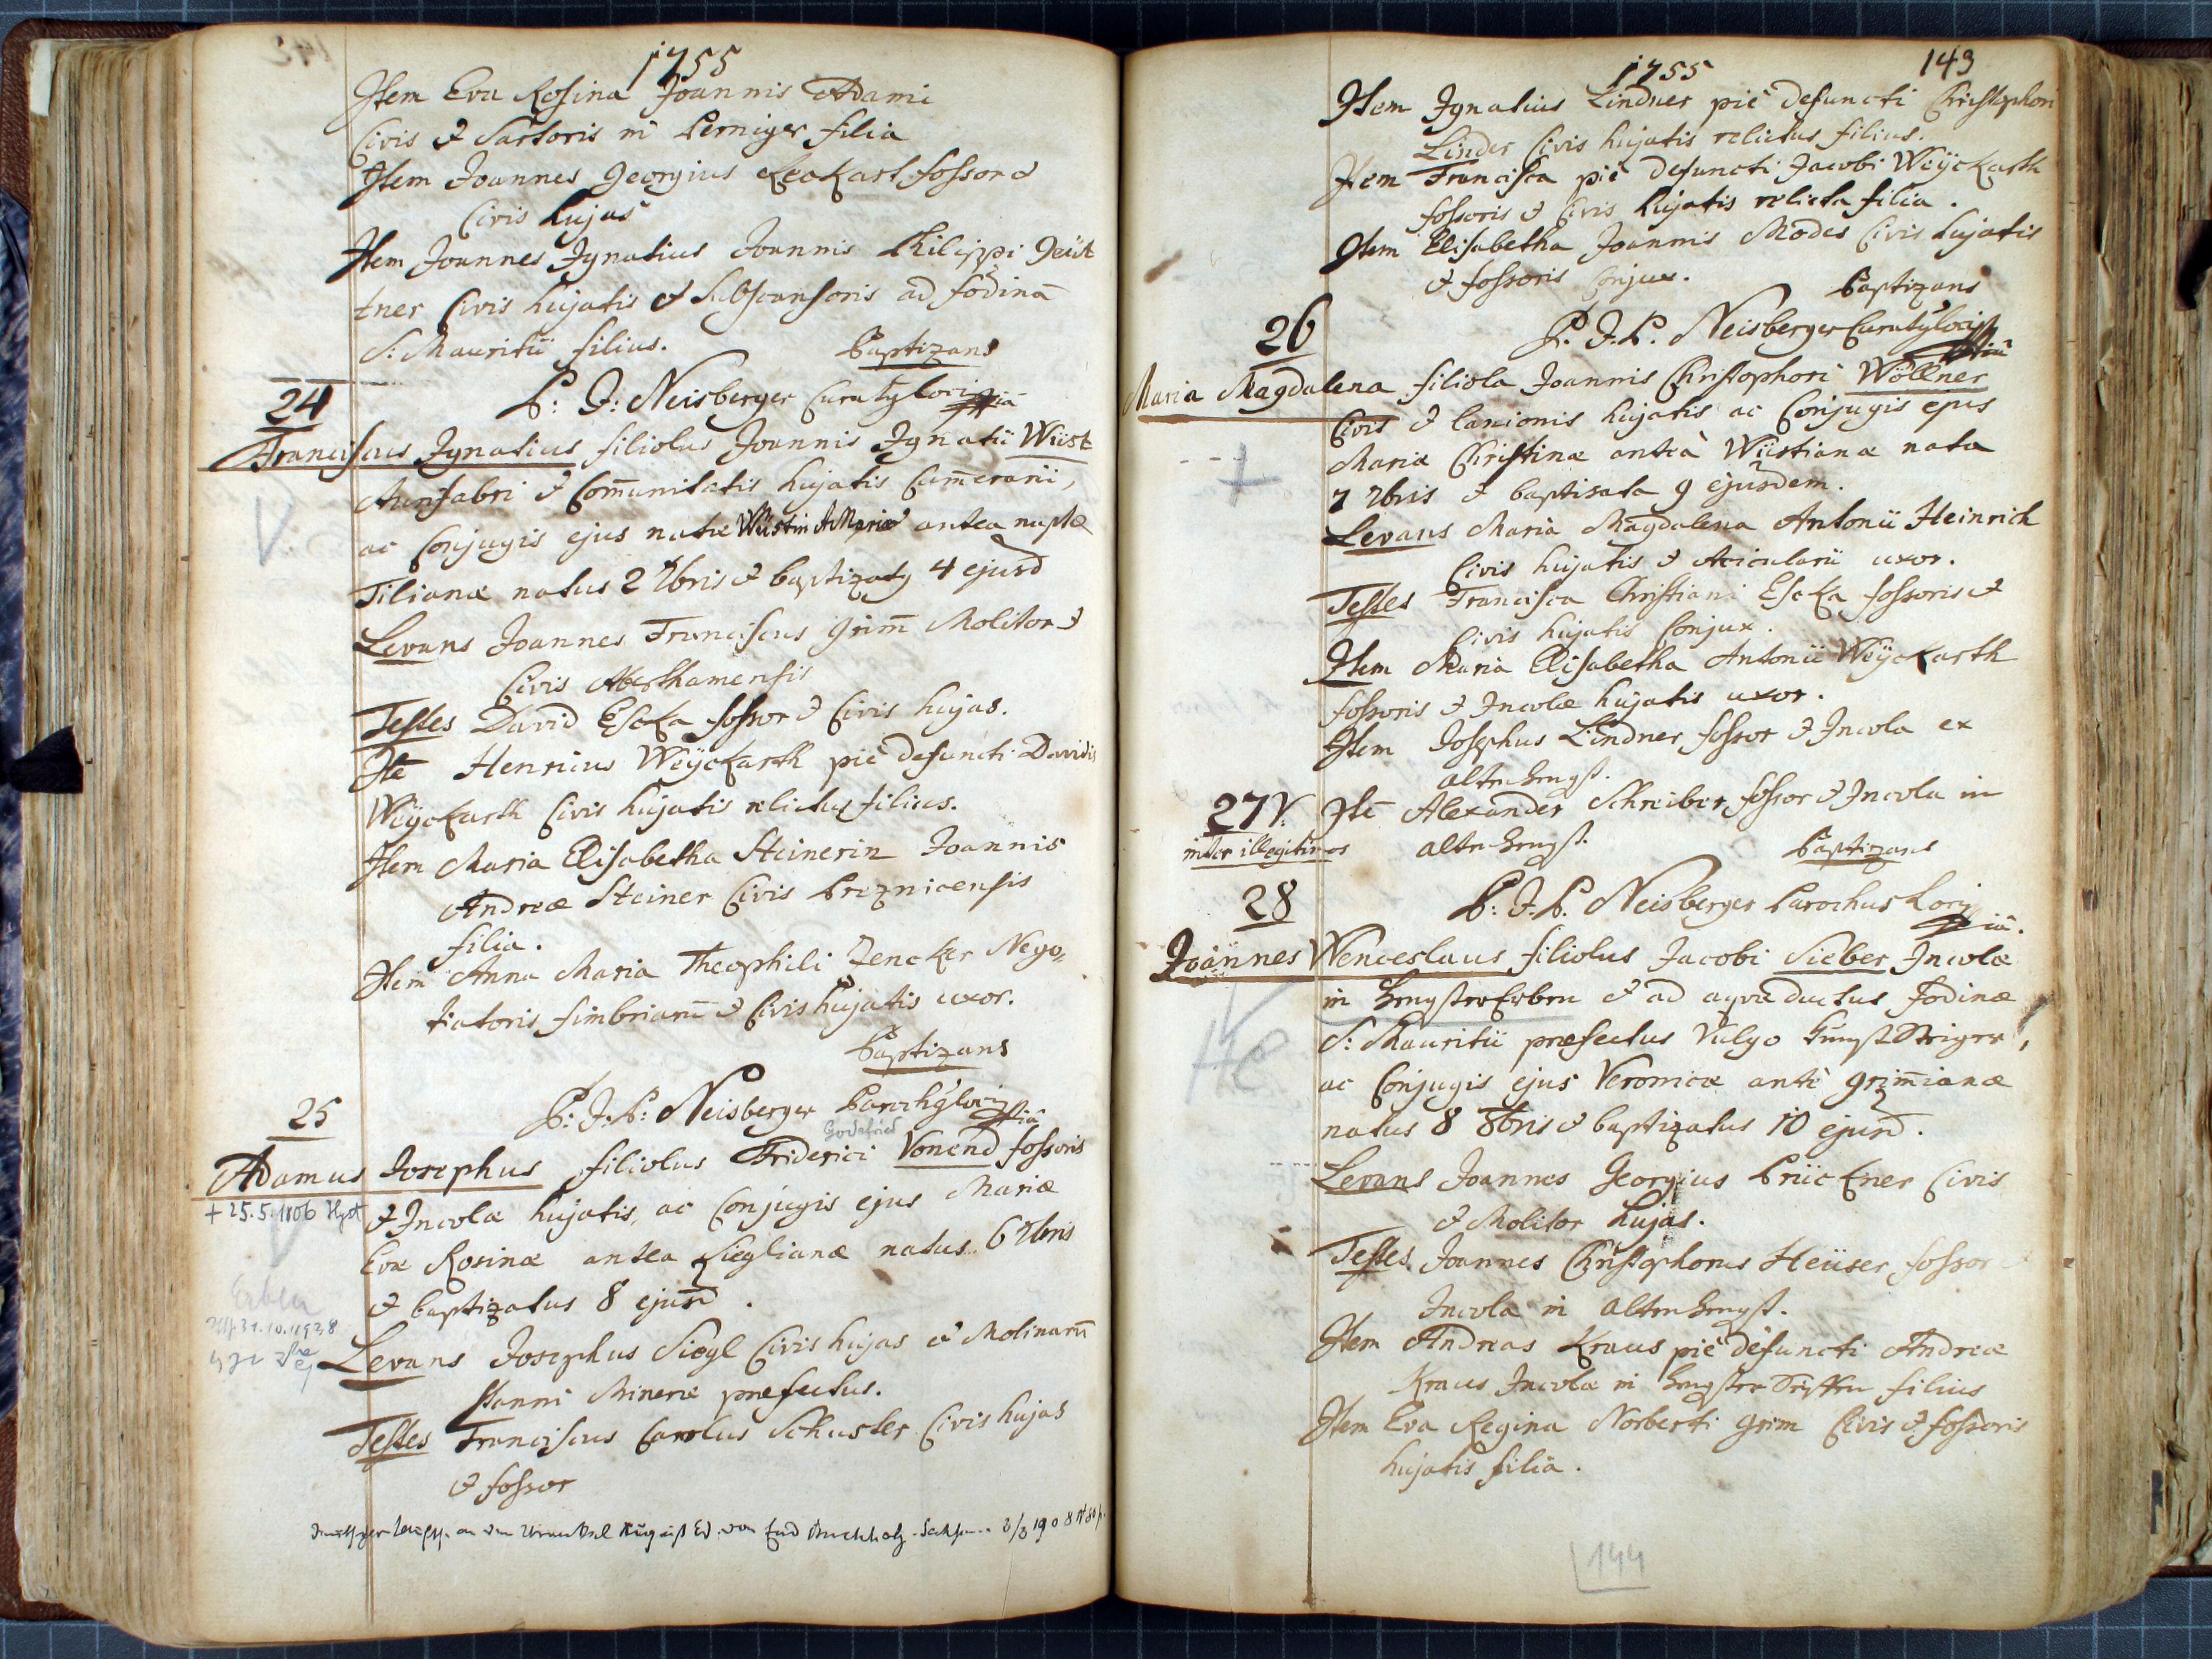 1755
Item Eva Rosina Joannis Adami
Civis & Sartoris in Perniger filia
Item Joannes Georgius Keckart fossor &
Civis hujas
Item Joannes Ignatius Joannis Philippi Geüt
tner Civis hujatis & Subscansoris ad fodinā
S: Mauritii filius. Baptizans
P: J: Neisberger
24
Franciscus Ignatius filiolus Joannis Ignatii Wüst
Aurifabri & Com̄unitatis hujatis Cam̄erarii,
ac Conjugis ejus natæ Wüstin A. Mariæ antea nuptæ
Tilianæ natus 2 7bris & baptizaty 4 ejusd
Levans Joannes Franciscus Grim̄ Molitor &
Civis Aberthamensis
Testes David Escka fossor & Civis hujas.
Itē Henricus Weÿckarth piè defuncti Davidis
Weÿckarth Civis hujatis relictus filius.
Item Maria Elisabetha Steinerin Joannis
Andreæ Steiner Civis Preznicensis
filia.
Item Anna Maria Theophili Zencker Nego=
tiatoris fimbriarum̄ & Civis hujatis uxor.
Baptizans
P: J. P: Neisberger
25
Godefried
Adamus Josephus filiolus Friderici Vonend fossoris
+ 25.5.1806 Hgst
& Incolæ hujatis, ac Conjugis ejus Mariæ
Evæ Rosinæ antea Sieglianæ natus 6 7bris
& baptizatus 8 ejusd.
Erben
31.10.1938
Levans Josephus Siegl Civis hujas & Molinarum̄
Stanni Mineræ præfectus.
Testes Franciscus Carolus Schuster Civis hujas
& fossor
1755
143
Item Ignatius Lindner piè defuncti Christophori
Linder Civis hujatis relictus filius.
Item Francisca piè defuncti Jacobi Weÿckarth
fossoris & Civis hujatis relicta filia.
Item Elisabetha Joannis Modes Civis hujatis
& fossoris Conjux. Baptizans
P. J. P. Neisberger
26
Maria Magdalena filiola Joannis Christophori Wöllner
Civis & lanionis hujatis ac Conjugis ejus
Mariæ Christinæ anteà Wüstianæ nata
7 7bris & baptisata 9 ejusdem.
Levans Maria Magdalena Antonii Heinrich
Civis hujatis & Acicularii uxor.
Testes Francisca Christiani Escka fossoris &
Civis hujatis Conjux.
Item Maria Elisabetha Antonii Weÿckarth
fossoris & Incolæ hujatis uxor.
Item Josephus Lindner fossor & Incola ex
Altenhengst.
27 V:
inter illegitimos
Itē Alexander Schreiber fossor & Incola in
Altenhengst. Baptizans
P: J. P. Neisberger Parochus
28
Joannes Wenceslaus filiolus Jacobi Sieber Incolæ
in Hengstererben & ad aquæ ductus fodinæ
S: Mauritii præfectus Vulgo Kunststeiger,
ac Conjugis ejus Veronicæ antè Grim̄ianæ
natus 8 8bris & baptizatus 10 ejusd.
Levans Joannes Georgius Prückner Civis
& Molitor hujas.
Testes Joannes Christophorus Heüser fossor &
Incola in Altenhengst.
Item Andreas Kraus piè defuncti Andreæ
Kraus Incolæ in filius
Item Eva Regina Norberti Grim Civis & fossoris
hujatis filia.
144